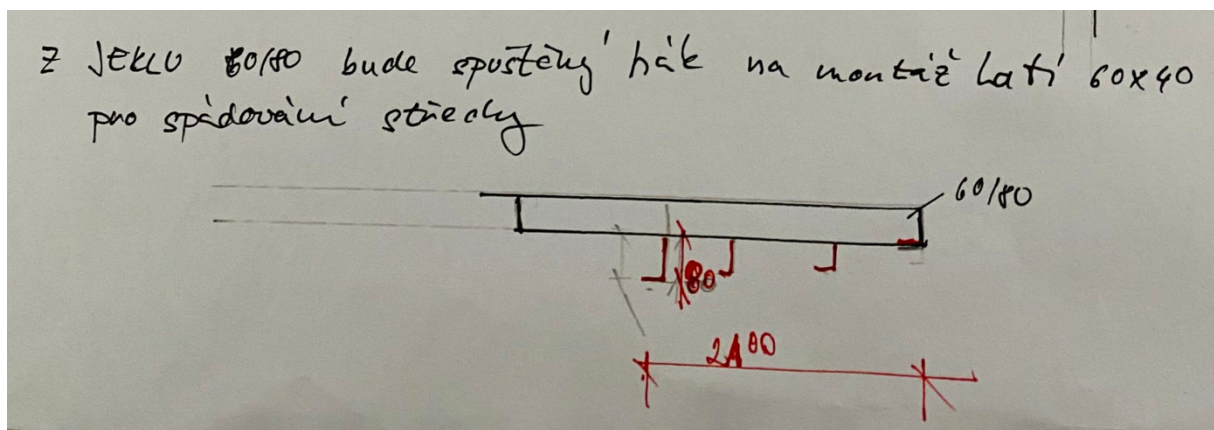 Z JEKLU 60/80 bude spuštěný hák na montáž latí 60x40
pro spádování střechy
60/80
80
2100